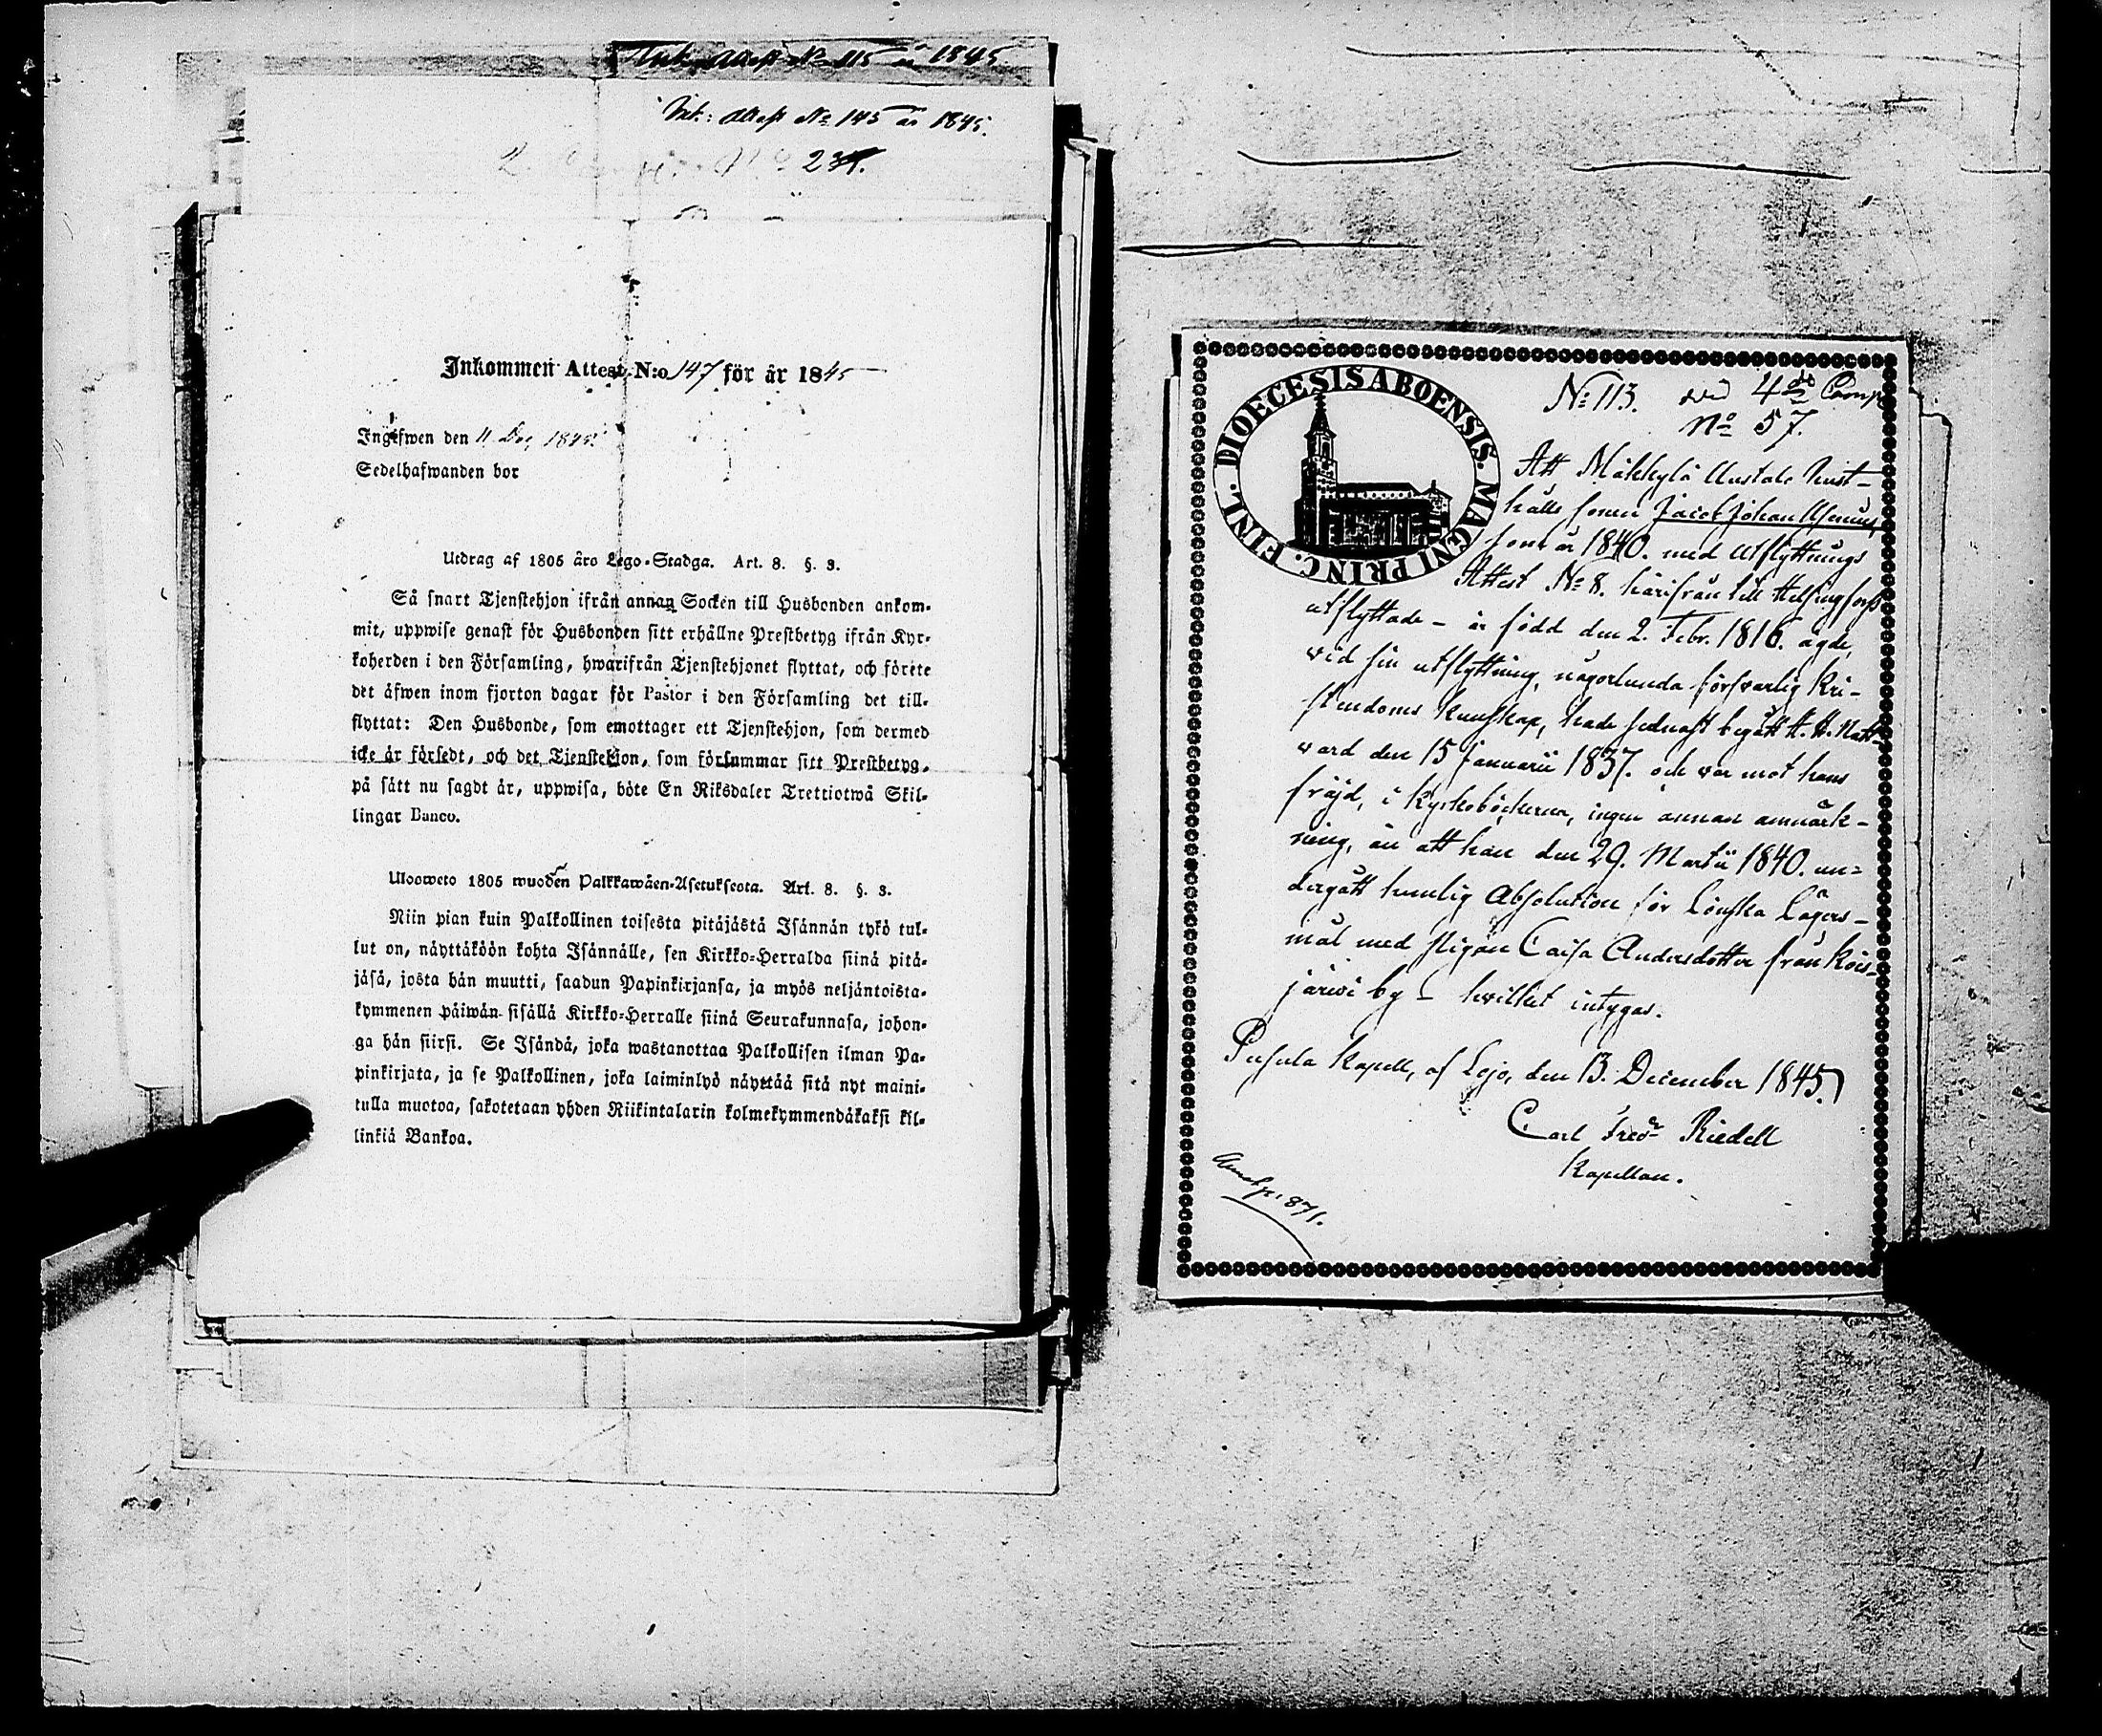 Ink. Attest No 115 år 1845.
Ink: Attest No 145 år 1845.
No 231.
Inkommen Attest N:o 147 för år 1845
Ingifwen den 11 Dec, 1845.
Sedelhafwanden bor
Utdrag af 1805 åro Lego-Stadga. Art. 8. §. 3.
Så snart Tjenstehjon ifrån annan Socken till Husbonden ankom-
mit, uppwise genast för Husbonden sitt erhållne Prestbetyg ifrån Kyr-
koherden i den Församling, hwarifrån Tjenstehjonet flyttat, och förete
det äfwen inom fjorton dagar för Pastor i den Församling det till-
flyttat: Den Husbonde, som emottager ett Tjenstehjon, som dermed
icke är försedt, och det Tjenstehjon, som försummar sitt Prestbetyg,
på sätt nu sagdt är, uppwisa, böte En Riksdaler Trettiotwå Skil-
lingar Banco.
Uloosweto 1805 wuoden Palkkawäen-Asetuksesta. Art. 8. §. 3.
Niin pian kuin Palkollinen toisesta pitäjästä Isännän tykö tul-
lut on, näyttäköön kohta Isännälle, sen Kirkko-Herralda siinä pitä-
jäsä, josta hän muutti, saadun Papinkirjansa, ja myös neljäntoista-
kymmenen päiwän sisällä Kirkko-Herralle siinä Seurakunnasa, johon-
ga hän siirsi. Se Isändä, joka wastanottaa Palkollisen ilman Pa-
pinkirjata, ja se Palkollinen, joka laiminlyö näyttää sitä nyt maini-
tulla muotoa, sakotetaan yhden Riikintalarin kolmekymmendäkaksi kil-
linkiä Bankoa.
DIOECESIS ABOENSIS. MAGNI PRINC. FINL.
No 113. vid 4de Comp
No 57.
Att Mäkkylä Uustalo Rust-
hålls sonen Jacob Johan
som år 1840. med Utflyttnings
Attest No 8. härifrån till Helsingfors
utflyttade - är född den 2. Febr. 1816. ägde,
vid sin utflyttning, någorlunda försvarlig Kri-
stendoms kunskap, hade sednast begått H. H. Natt-
vard den 15 Januarii 1837. och var mot hans
fräjd, i Kyrkoböckerna, ingen annan anmärk-
ning, än att han den 29. Martii 1840. un-
dergått hemlig Absolution för Lönska Lägers-
mål med pigan Caisa Andersdotter från Kois-
järwi by - hvilket intygas.
Pusula Kapell, af Lojo, den 13. December 1845.
Carl Fredr Riedell
Kapellan.
1871.